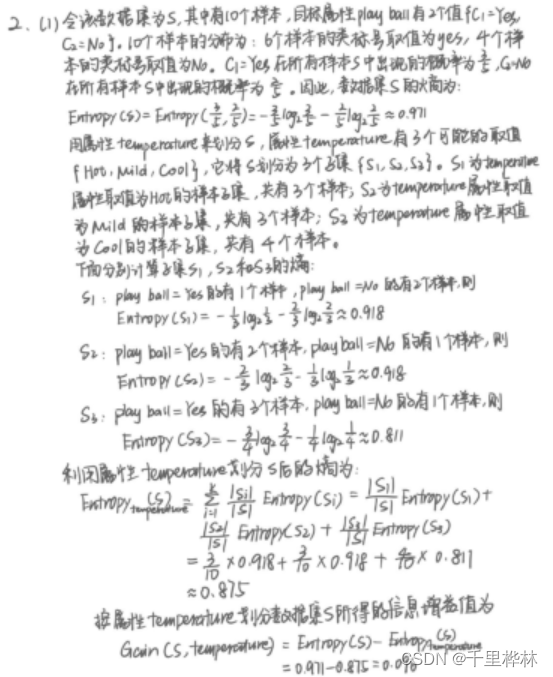 2、(1) 令该数据集为S,其中有10个样本,目标属性play ball有2个值{C₁=Yes,
C₂=No}。10个样本的分布为:6个样本的类标号取值为yes,4个样
本的类标号取值为No。C₁=Yes在所有样本S中出现的概率为3/5,C₂=No
在所有样本S中出现的概率为2/5。因此,数据集S的熵为:
Entropy(S)=Entropy(3/5,2/5)=-3/5log₂3/5-2/5log₂2/5≈0.971
用属性temperature来划分S,属性temperature有3个可能的取值
{Hot,Mild,Cool},它将S划分为3个子集{S₁,S₂,S₃}。S₁为temperature
属性取值为Hot的样本子集,共有3个样本;S₂为temperature属性取值
为Mild的样本子集,共有3个样本;S₃为temperature属性取值
为Cool的样本子集,共有4个样本。
下面分别计算子集S₁,S₂和S₃的熵:
S₁:play ball=Yes的有1个样本,play ball=No的有2个样本,则
Entropy(S₁)=-1/3log₂1/3-2/3log₂2/3≈0.918
S₂:play ball=Yes的有2个样本,play ball=No的有1个样本,则
Entropy(S₂)=-2/3log₂2/3-1/3log₂1/3≈0.918
S₃:play ball=Yes的有3个样本,play ball=No的有1个样本,则
Entropy(S₃)=-3/4log₂3/4-1/4log₂1/4≈0.811
利用属性temperature划分S后的熵为:
Entropy temperature(S)=∑ᵢ₌₁ᵏ |Sᵢ|/|S| Entropy(Sᵢ)=|S₁|/|S| Entropy(S₁)+
|S₂|/|S| Entropy(S₂)+|S₃|/|S| Entropy(S₃)
=3/10×0.918+3/10×0.918+4/10×0.811
≈0.875
按属性temperature划分数据集S所得的信息增益值为
Gain(S,temperature)=Entropy(S)-Entropy temperature(S)
=0.971-0.875=0.096
CSDN @千里桦林